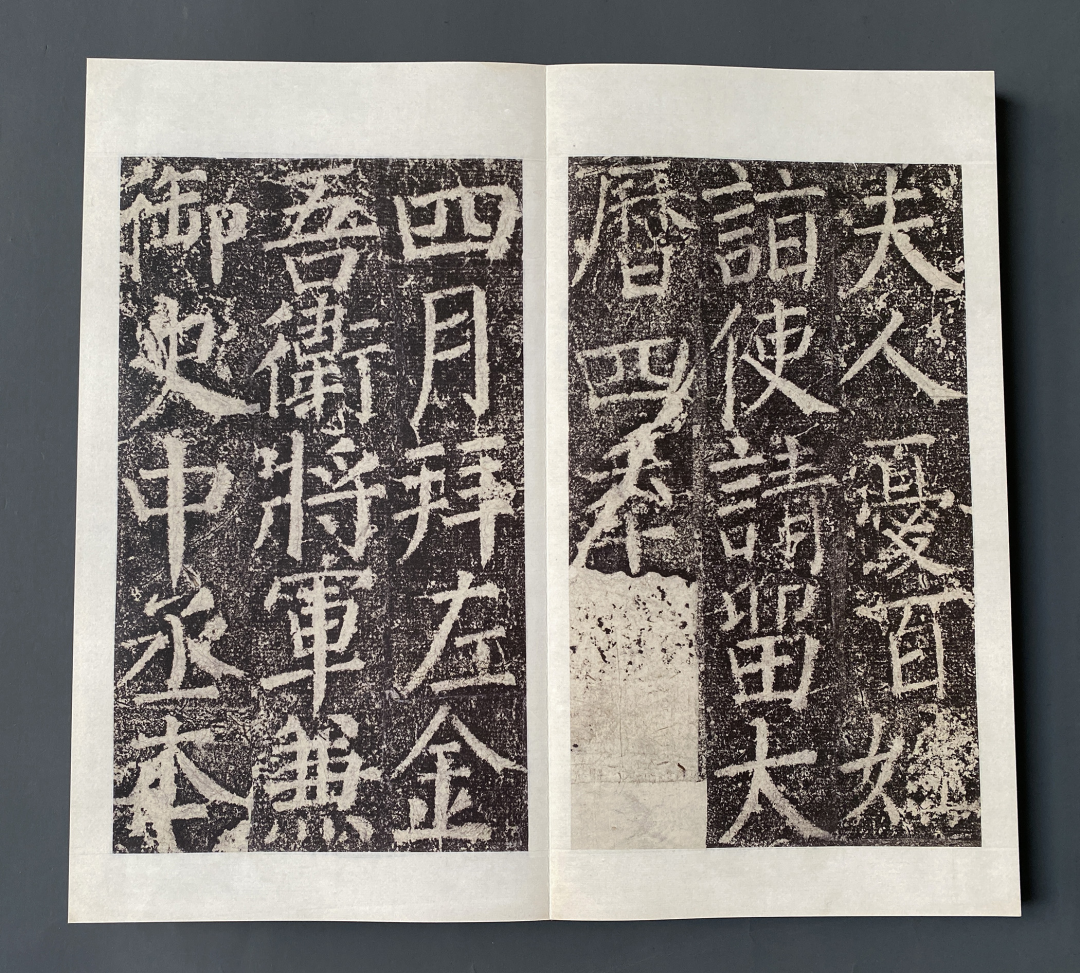 夫人憂百姓
詣使請留大
曆四年
四月拜左金
吾衛將軍兼
御史中丞本